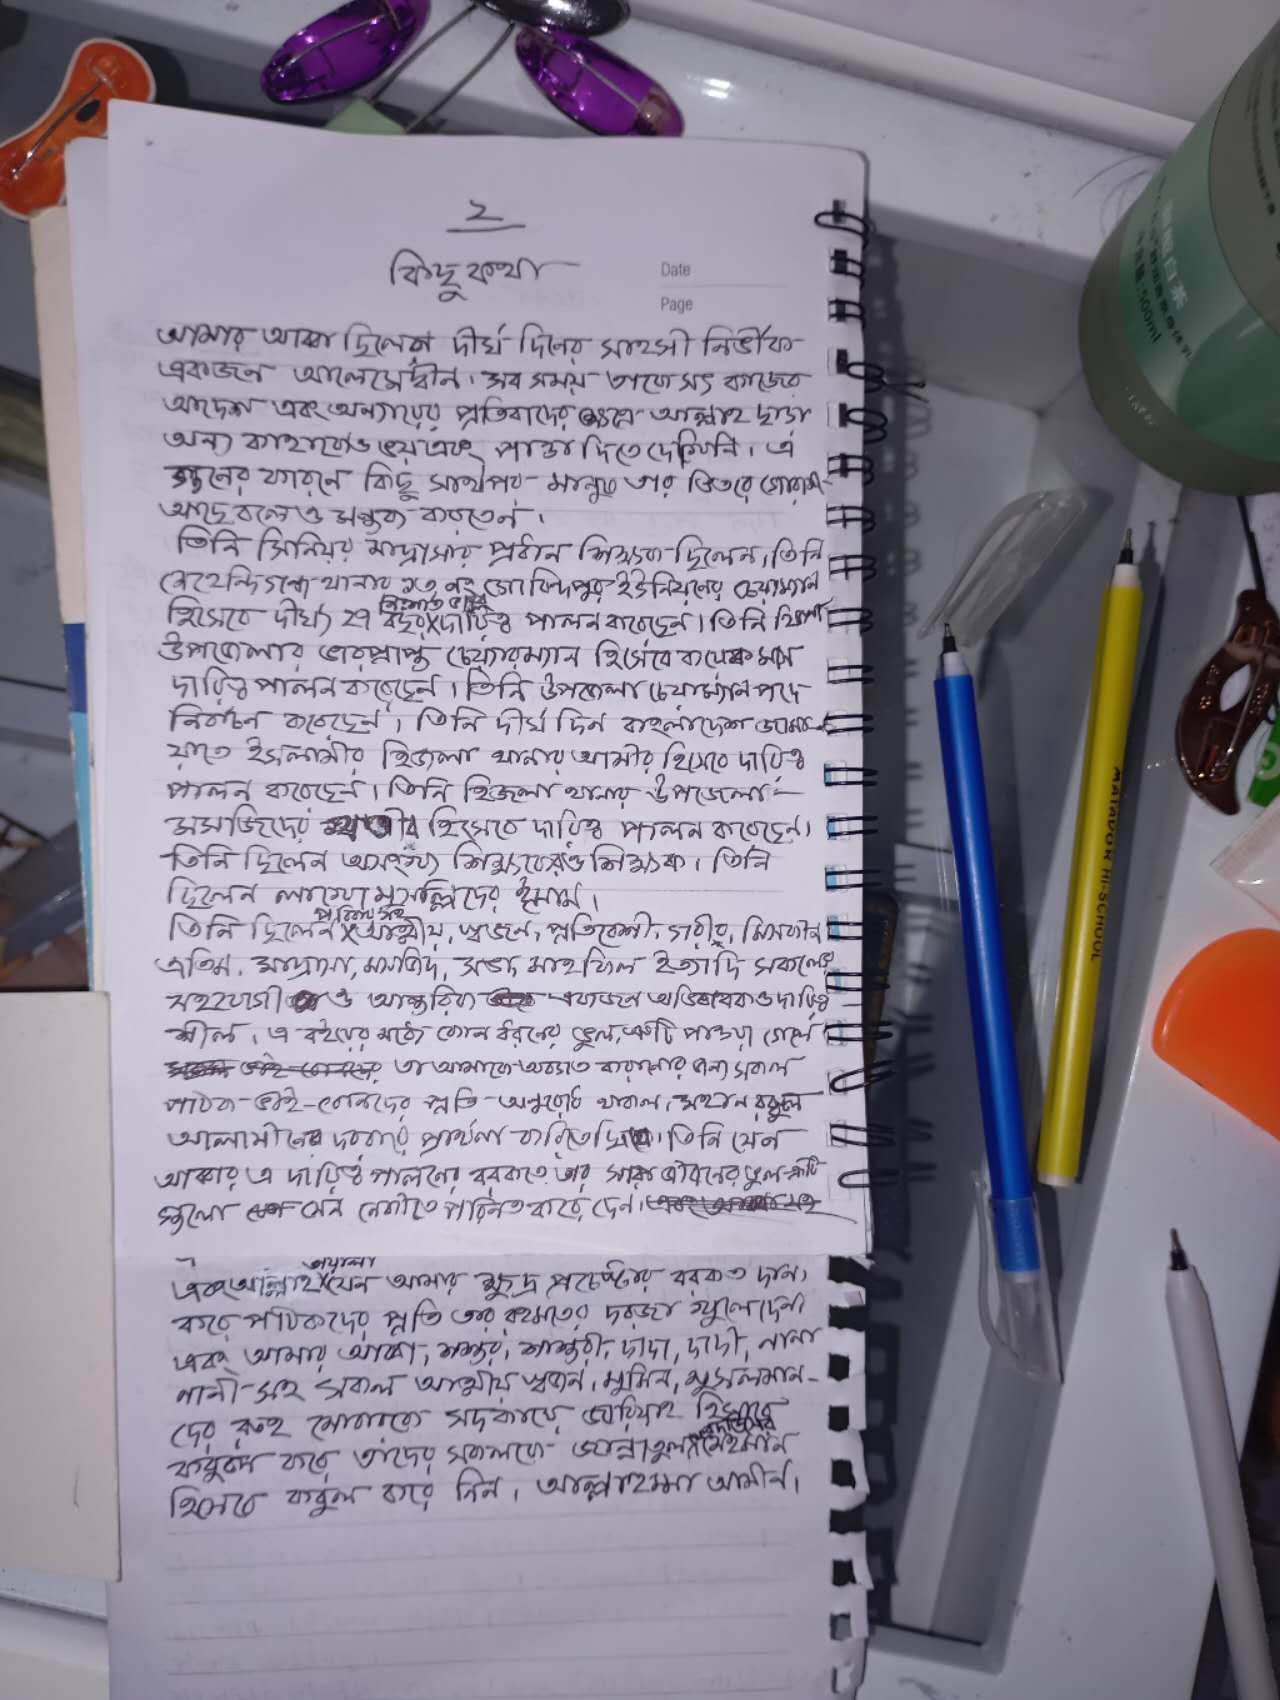 ২
কিছু কথা
Date
Page
আমার আব্বা ছিলেন দীর্ঘ দিনের সাহসী নির্ভীক
একজন আলেমেদ্বীন। সব সময় তাকে সৎ কাজের
আদেশ এবং অন্যায়ের প্রতিবাদের ক্ষেত্রে আল্লাহ ছাড়া
অন্য কাহাকেও ভয় এবং পাত্তা দিতে দেখিনি। এ
গুনের কারনে কিছু সার্থপর মানুষ তার ভিতরে
আছে বলেও মন্তব্য করতেন।
তিনি সিনিয়র মাদ্রাসার প্রধান শিক্ষক ছিলেন, তিনি
মেহেন্দিগঞ্জ থানার নং গোবিন্দপুর ইউনিয়নের চেয়ারম্যান
হিসেবে দীর্ঘ ২৭ বছর দায়িত্ব পালন করেছেন। তিনি হিজলা
উপজেলার ভারপ্রাপ্ত চেয়ারম্যান হিসেবে কয়েক মাস
দায়িত্ব পালন করেছেন। তিনি উপজেলা চেয়ারম্যান পদে
নির্বাচন করেছেন। তিনি দীর্ঘ দিন বাংলাদেশ জামা-
য়াতে ইসলামীর হিজলা থানার আমীর হিসেবে দায়িত্ব
পালন করেছেন। তিনি হিজলা থানার উপজেলা-
মসজিদের খতীব হিসেবে দায়িত্ব পালন করেছেন।
তিনি ছিলেন অসংখ্য শিক্ষকেরও শিক্ষক। তিনি
ছিলেন লাখো মুসল্লিদের ইমাম।
তিনি ছিলেন পরিবার সহ আত্মীয়, স্বজন, প্রতিবেশী, গরীব, মিসকীন
এতিম, মাদ্রাসা, মসজিদ, সভা মাহফিল ইত্যাদি সকলের
সহযোগী ও আন্তরিক একজন অভিভাবক ও দায়িত্ব
শীল। এ বইয়ের মধ্যে কোন ধরনের ভুল, ত্রুটি পাওয়া গেলে
তা আমাকে অবগত করানোর জন্য সকল
পাঠক ভাই-বোনদের প্রতি অনুরোধ থাকল। মহান রব্বুল
আলামীনের দরবারে প্রার্থনা করিতেছি। তিনি যেন
আব্বার এ দায়িত্ব পালনের বরকতে তার সারা জীবনের ভুল-ত্রুটি
গুলো যেন নেকীতে পরিনত করে দেন।
এবং আল্লাহ তায়ালা যেন আমার ক্ষুদ্র প্রচেষ্টার বরকত দান
করে পাঠকদের প্রতি তার রহমতের দরজা খুলে দেন।
এবং আমার আব্বা, শশুর, শাশুরী, দাদা, দাদী, নানা
নানী সহ সকল আত্মীয় স্বজন, মুমিন, মুসলমান-
দের রুহ মোবারকে সদকায়ে জারিয়াহ হিসাবে
কবুল করে তাঁদের সকলকে জান্নাতুল ফেরদাউসের মেহমান
হিসেবে কবুল করে নিন। আল্লাহুম্মা আমীন।
MATADOR HI-SCHOOL
500ml